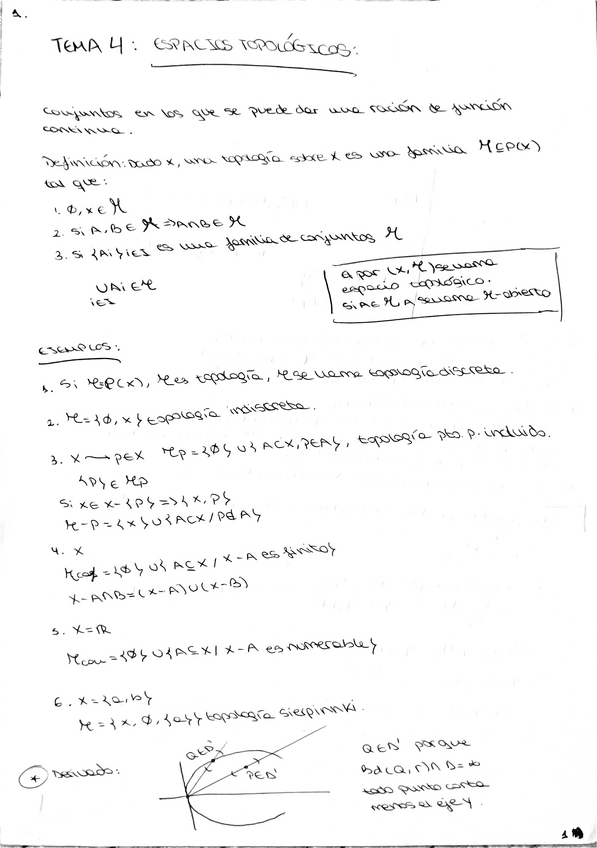 1.
TEMA 4: ESPACIOS TOPOLÓGICOS:
Conjuntos en los que se puede dar una ración de función
continua.
Definición: Dado x, una topología sobre x es una familia τ⊆P(x)
tal que:
1. ∅, x ∈ τ
2. Si A, B ∈ τ ⇒ A∩B ∈ τ
3. Si {Ai}i∈I es una familia de conjuntos τ
∪Ai ∈ τ
i∈I
a por (x, τ) se llama
espacio topológico.
Si A∈τ, A se llama τ-abierto
EJEMPLOS:
1. Si τ=P(x), τ es topología, τ se llama topología discreta.
2. τ={∅, x} topología indiscreta.
3. x → p∈x τp={∅}∪{A⊂x, p∈A}, topología pto. p. incluido.
{p}∈τp
Si x∈x-{p} ⇒ {x, p}
τ-p = {x}∪{A⊂x / p∉A}
4. x
τcof = {∅}∪{A⊆x / x-A es finito}
x-A∩B=(x-A)∪(x-B)
5. x=ℝ
τcon = {∅}∪{A⊆x / x-A es numerable}
6. x={a,b}
τ={x, ∅, {a}} topología Sierpinnki.
* Derivado:
Q∈D'
P∈D'
Q∈D' porque
Bd(Q,r)∩D=∞
todo punto corta
menos el eje y.
1